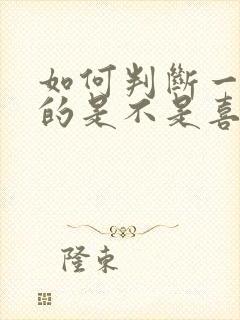 如何判斷一
的是不是喜
隆東